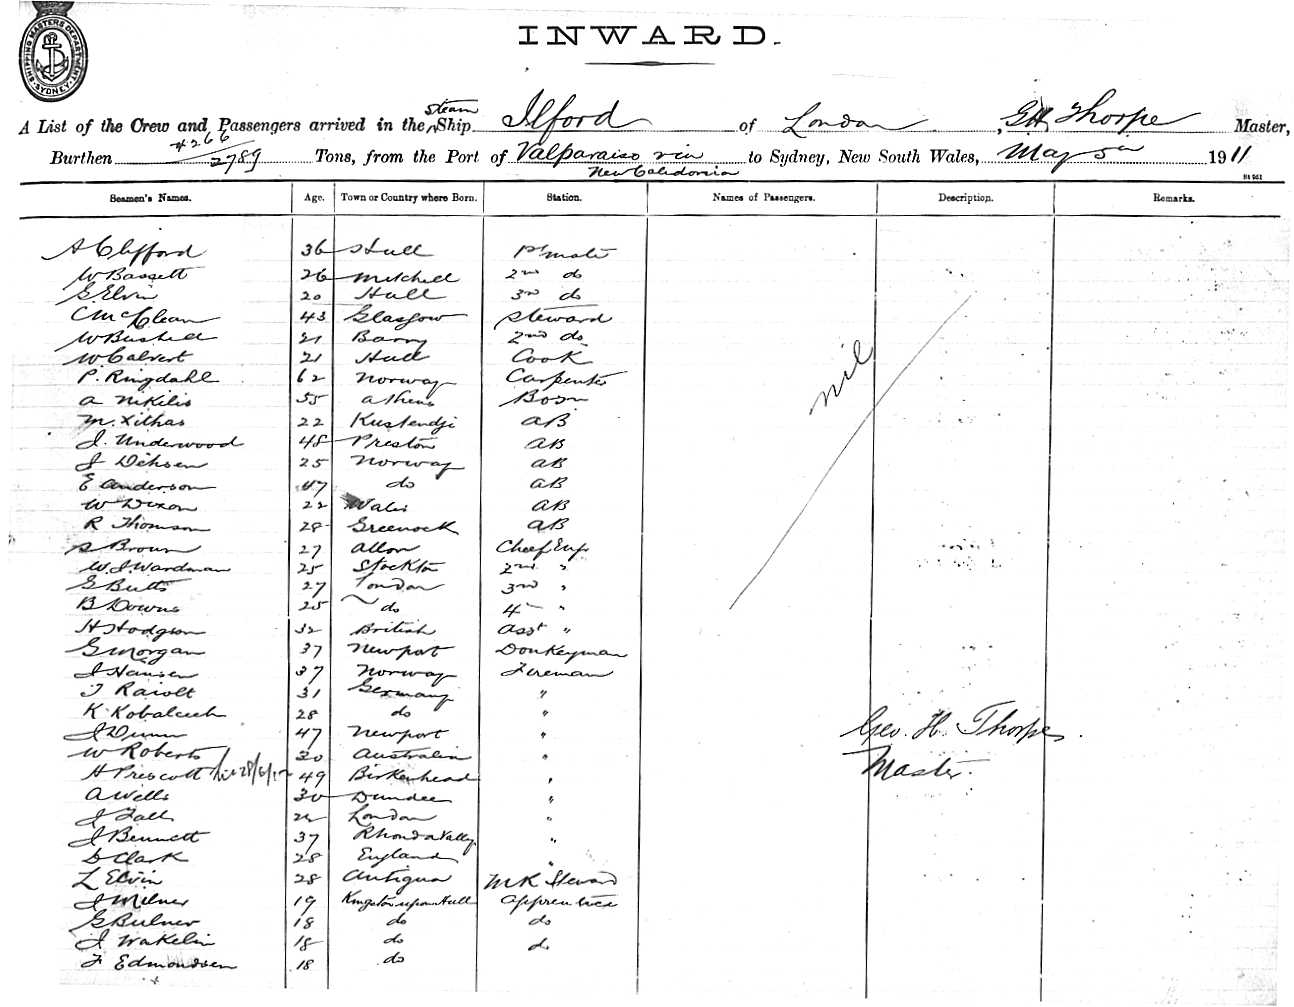 SHIPPING MASTERS DEPARTMENT SYDNEY
INWARD.
A List of the Crew and Passengers arrived in the Steam Ship Ilford of London, G H Thorpe Master,
Burthen 4266 / 2789 Tons, from the Port of Valparaiso via New Caledonia to Sydney, New South Wales, May 5th 1911
Seamen's Names. Age. Town or Country where Born. Station. Names of Passengers. Description. Remarks.
A Clifford 36 Hull 1st mate
W Bassett 26 Mitchell 2nd do
G Elvin 20 Hull 3rd do
C McClean 43 Glasgow Steward
W Busted 21 Barry 2nd do
W Calvert 21 Hull Cook
P. Ringdahl 62 Norway Carpenter
A Nikilis 55 Athens Bosn
M. Xithas 22 Kustendji AB
J. Underwood 48 Preston AB
J Dehsen 25 Norway AB
E Anderson 47 do AB
W Dixon 22 Wales AB
R Thomson 28 Greenock AB
S Brown 27 Alloa Cheef Eng
W. J. Wardman 25 Stockton 2nd "
G Butts 27 London 3rd "
B Downs 25 do 4th "
H Hodgson 32 British Asst "
G Morgan 37 Newport Donkeyman
J Hansen 37 Norway Fireman
T Raiolt 31 Germany "
K Kobalcuch 28 do "
J Dunn 47 Newport "
W Roberts 30 Australia "
H Prescott 49 Birkenhead "
A Wells 30 Dundee "
J Fall London "
J Bennett 37 Rhonda Valley "
D Clark 28 England "
L Elvin 28 Antigua MR Steward
J Milner 19 Kingston upon Hull Apprentice
G Bulner 18 do do
J Wakelin 18 do do
F Edmondsen 18 do
nil
Geo. H. Thorpe
Master.